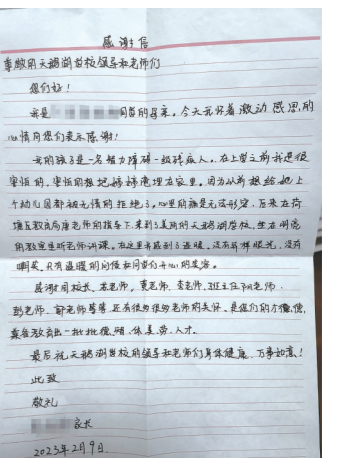 感谢信
尊敬的天鹅湖学校领导和老师们
您们好！
我是 同学的母亲。今天我怀着激动感恩的
心情向您们表示感谢！
我的孩子是一名智力障碍一级残疾人。在上学之前我是很
害怕的，害怕的想把她 在家里。因为以前想给她上
个幼儿园都被无情的拒绝了。心里的痛是无法形容。后来在荷
塘区教育局唐老师的指导下，来到了美丽的天鹅湖学校，坐在明亮
的教室里听老师讲课。在这里 感到了温暖，没有异样眼光，没有
嘲笑，只有温暖的问候和同学们开心的笑容。
感谢周校长、 老师、黄老师、李老师、班主任阳老师、
彭老师、郭老师等等还有很多很多老师的关怀。是您们的
教育出一批批德、智、体、美、劳、人才。
最后祝天鹅湖学校的领导和老师们身体健康、万事如意！
此致
敬礼
家长
2023年2月9日